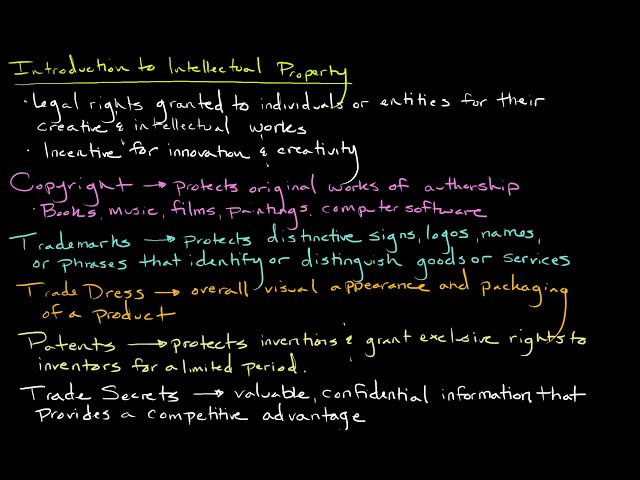 Introduction to Intellectual Property
· Legal rights granted to individuals or entities for their
creative & intellectual works
· Incentive for innovation & creativity
Copyright → protects original works of authorship
· Books, music, films, paintings, computer software
Trademarks → protects distinctive signs, logos, names,
or phrases that identify or distinguish goods or services
Trade Dress → overall visual appearance and packaging
of a product
Patents → protects inventions & grant exclusive rights to
inventors for a limited period.
Trade Secrets → valuable, confidential information that
provides a competitive advantage